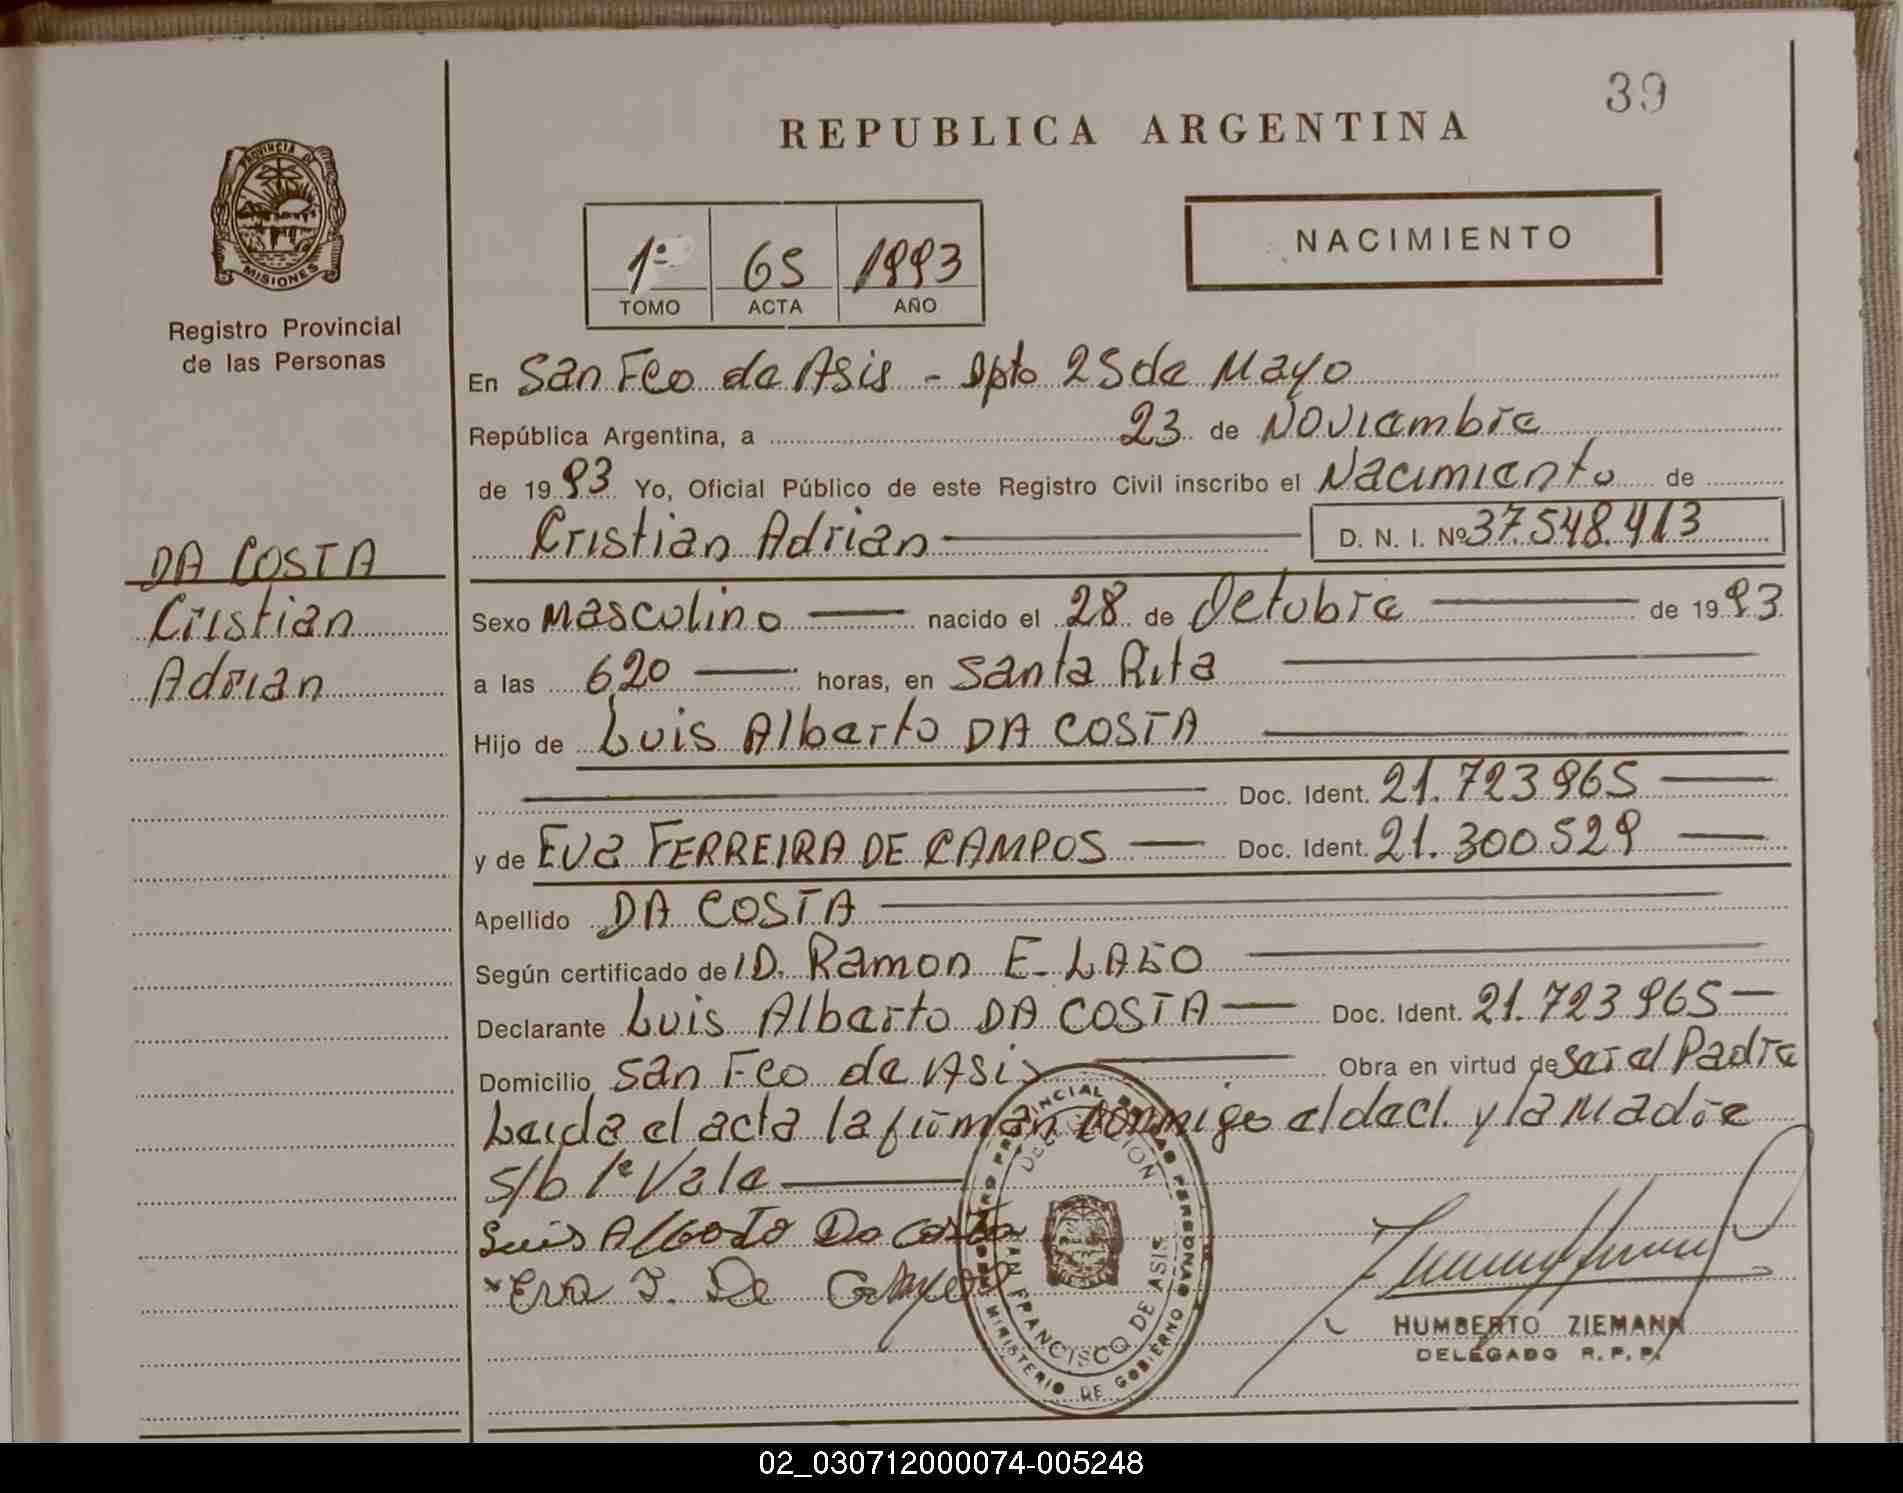 39
REPUBLICA ARGENTINA
PROVINCIA DE
MISIONES
Registro Provincial
de las Personas
1º 65 1993
TOMO ACTA AÑO
NACIMIENTO
En San Fco de Asis - Dpto 25 de Mayo
República Argentina, a 23 de Noviembre
de 1993 Yo, Oficial Público de este Registro Civil inscribo el Nacimiento de
Cristian Adrian D. N. I. Nº 37.548.413
DA COSTA
Cristian
Adrian
Sexo Masculino nacido el 28 de Octubre de 1993
a las 6,20 horas, en Santa Rita
Hijo de Luis Alberto DA COSTA
Doc. Ident. 21.723.965
y de Eva FERREIRA DE CAMPOS Doc. Ident. 21.300.529
Apellido DA COSTA
Según certificado de I.D. Ramon E.
Declarante Luis Alberto DA COSTA Doc. Ident. 21.723.965
Domicilio San Fco de Asis Obra en virtud de ser el Padre
Leida el acta la firman conmigo el decl. y la Madre
s/b 1º Vale
Luis Alberto Da Costa
Eva F. De Campos
REGISTRO PROVINCIAL DE LAS PERSONAS
DELEGACION
SAN FRANCISCO DE ASIS
MINISTERIO DE GOBIERNO
HUMBERTO ZIEMANN
DELEGADO R.P.P.
02_030712000074-005248